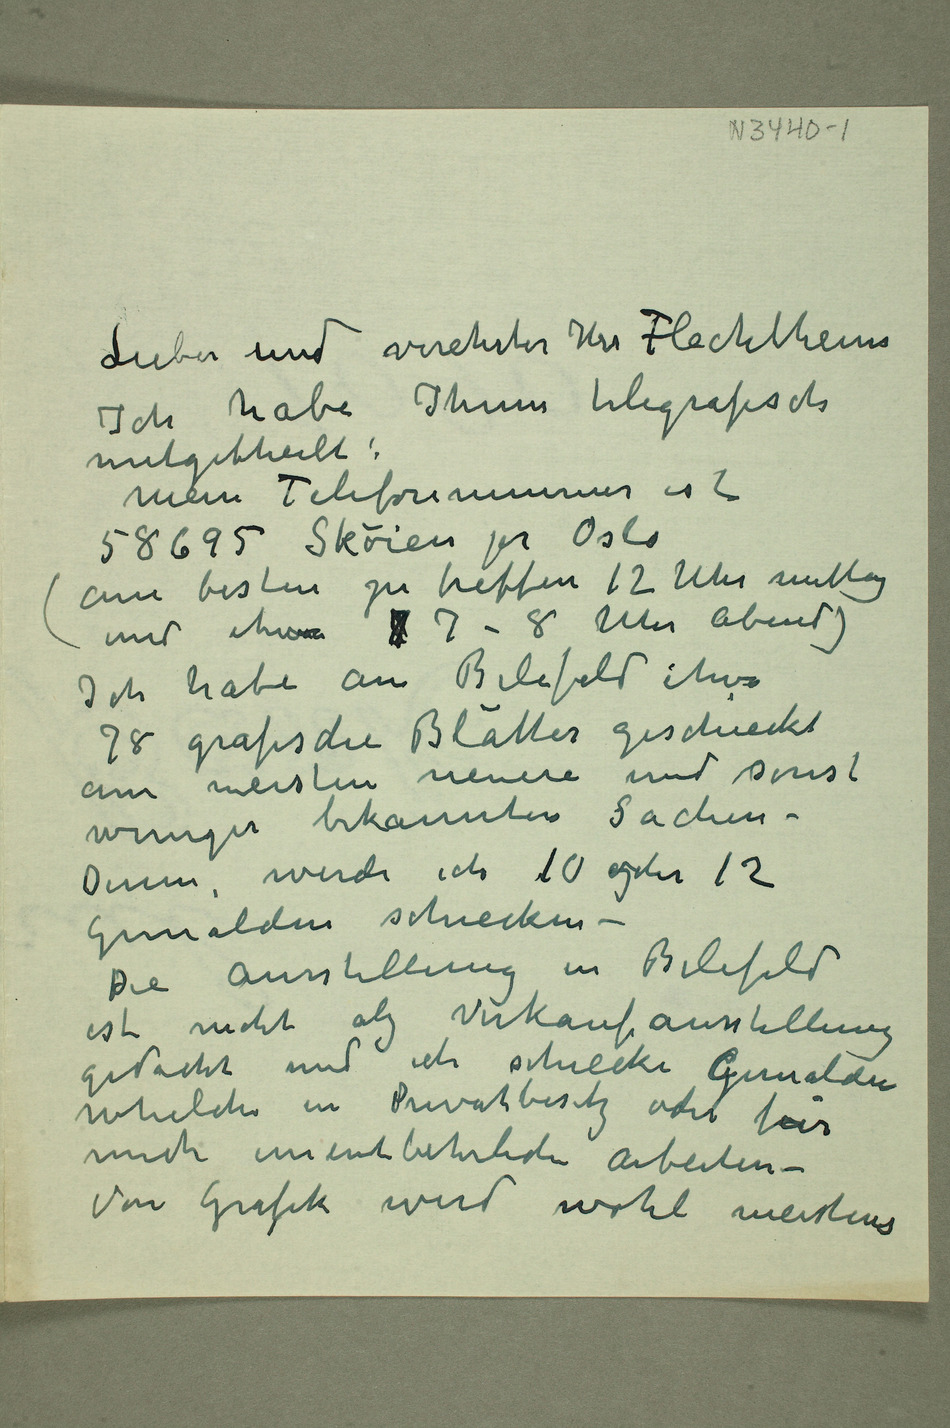 N3440-1
Lieber und verehrter Herr Flechtheim
Ich habe Ihnen telegrafisch
mitgetheilt:
mein Telefonnummer ist
58695 Sköien pr Oslo
(am besten zu treffen 12 Uhr mittag
und etwa 7 – 8 Uhr abend)
Ich habe an Bilefeld etwa
78 grafische Blätter geschieckt
am meisten neuere und sonst
weniger bekannten Sachen –
Denn, werde ich 10 oder 12
Gemälden schiecken –
Die ausstellung in Bilefeld
ist nicht als Verkaufausstellung
gedacht und ich schiecke Gemälden
whelche in Privatbesitz oder für
mich unentbehrliche arbeiten –
Von Grafik wird wohl meistens